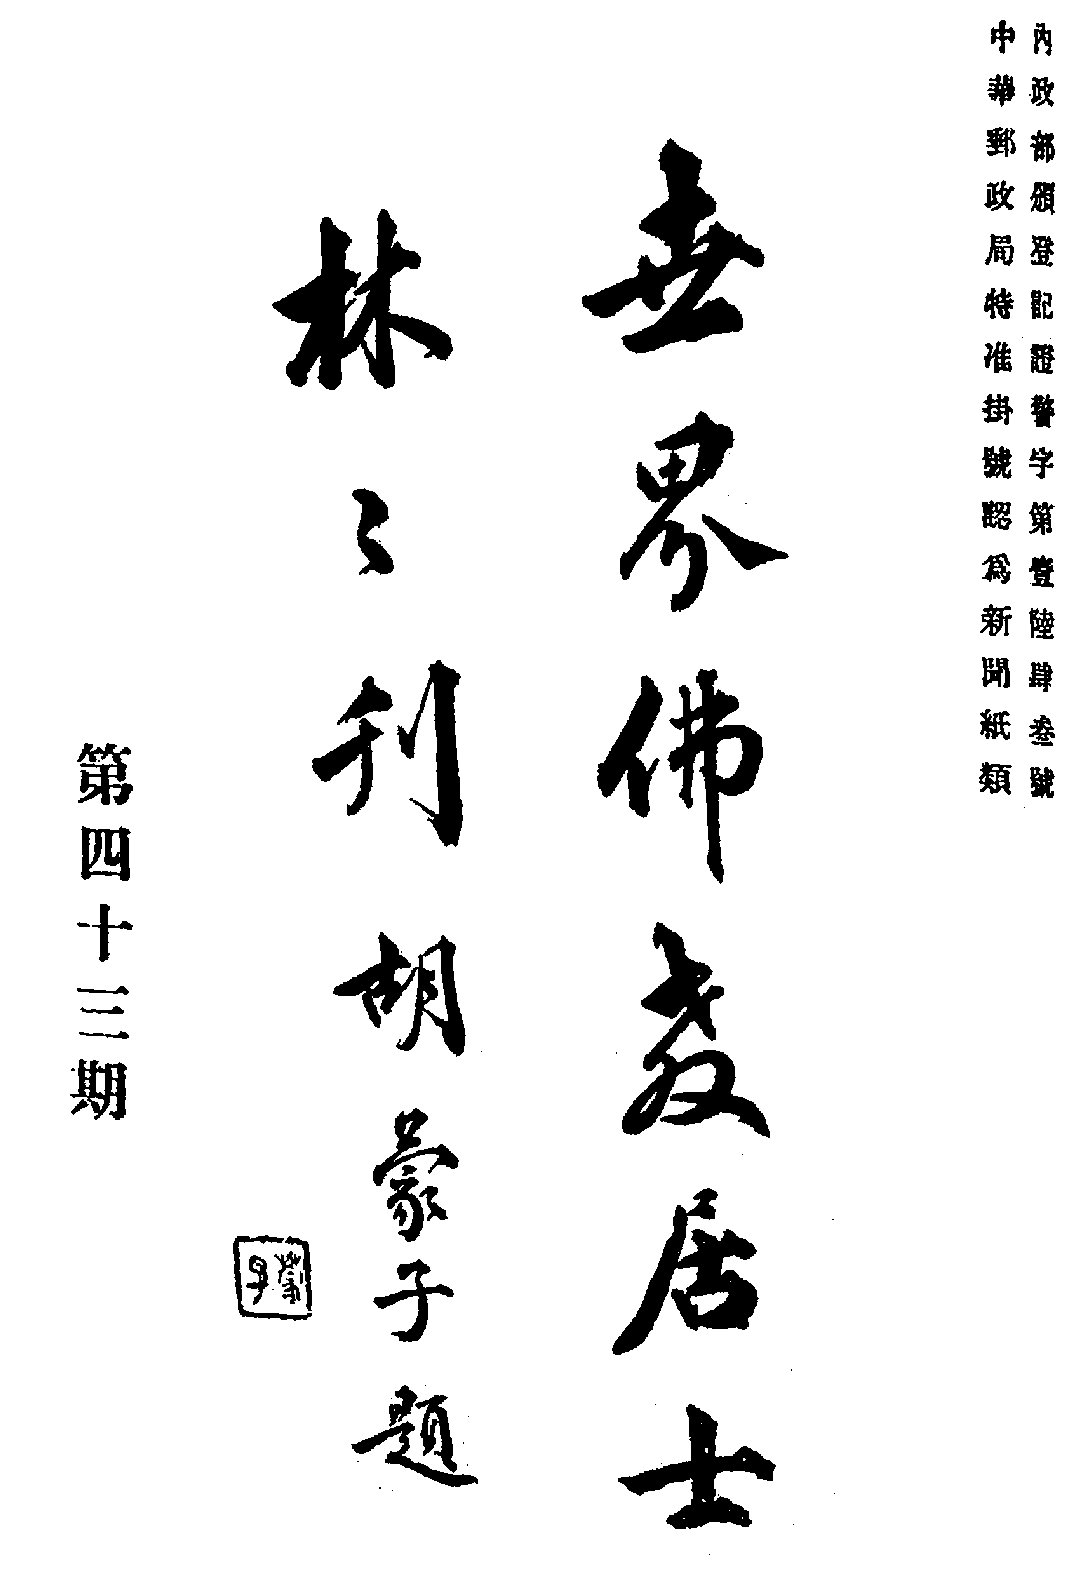 內政部頒登記證警字第壹陸肆叁號
中華郵政局特准掛號認爲新聞紙類
世界佛教居士
林〻刊胡蒙子題
蒙子
第四十三期